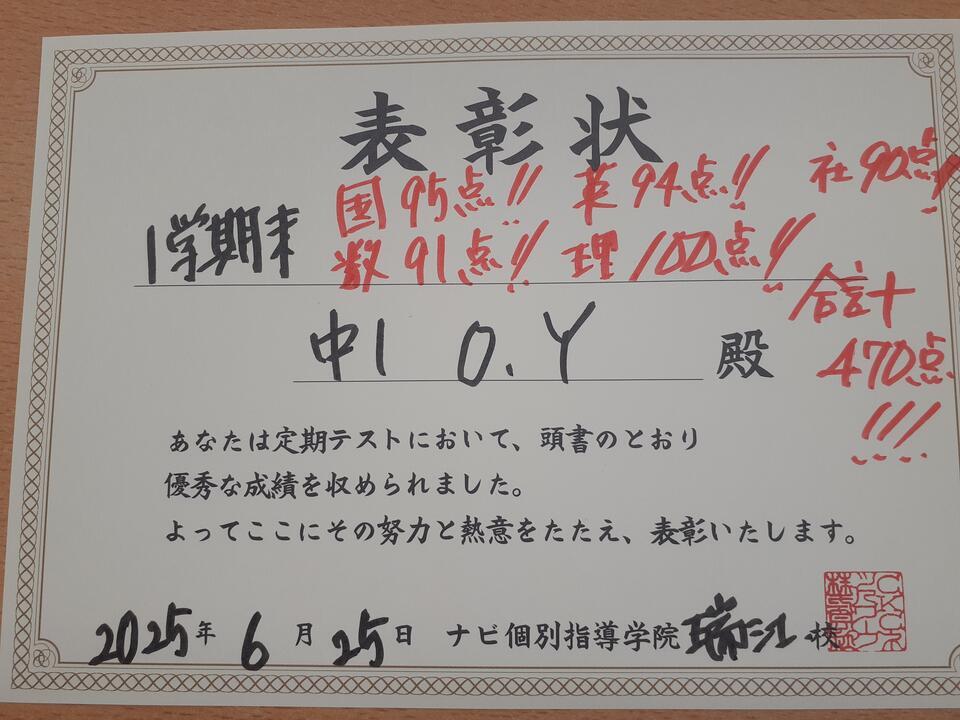 表彰状
国95点!! 英94点!! 社90点!!
1学期末 数91点!! 理100点!!
合計
470点
!!!
中1 O.Y 殿
あなたは定期テストにおいて、頭書のとおり
優秀な成績を収められました。
よってここにその努力と熱意をたたえ、表彰いたします。
2025年6月25日 ナビ個別指導学院瑞江校